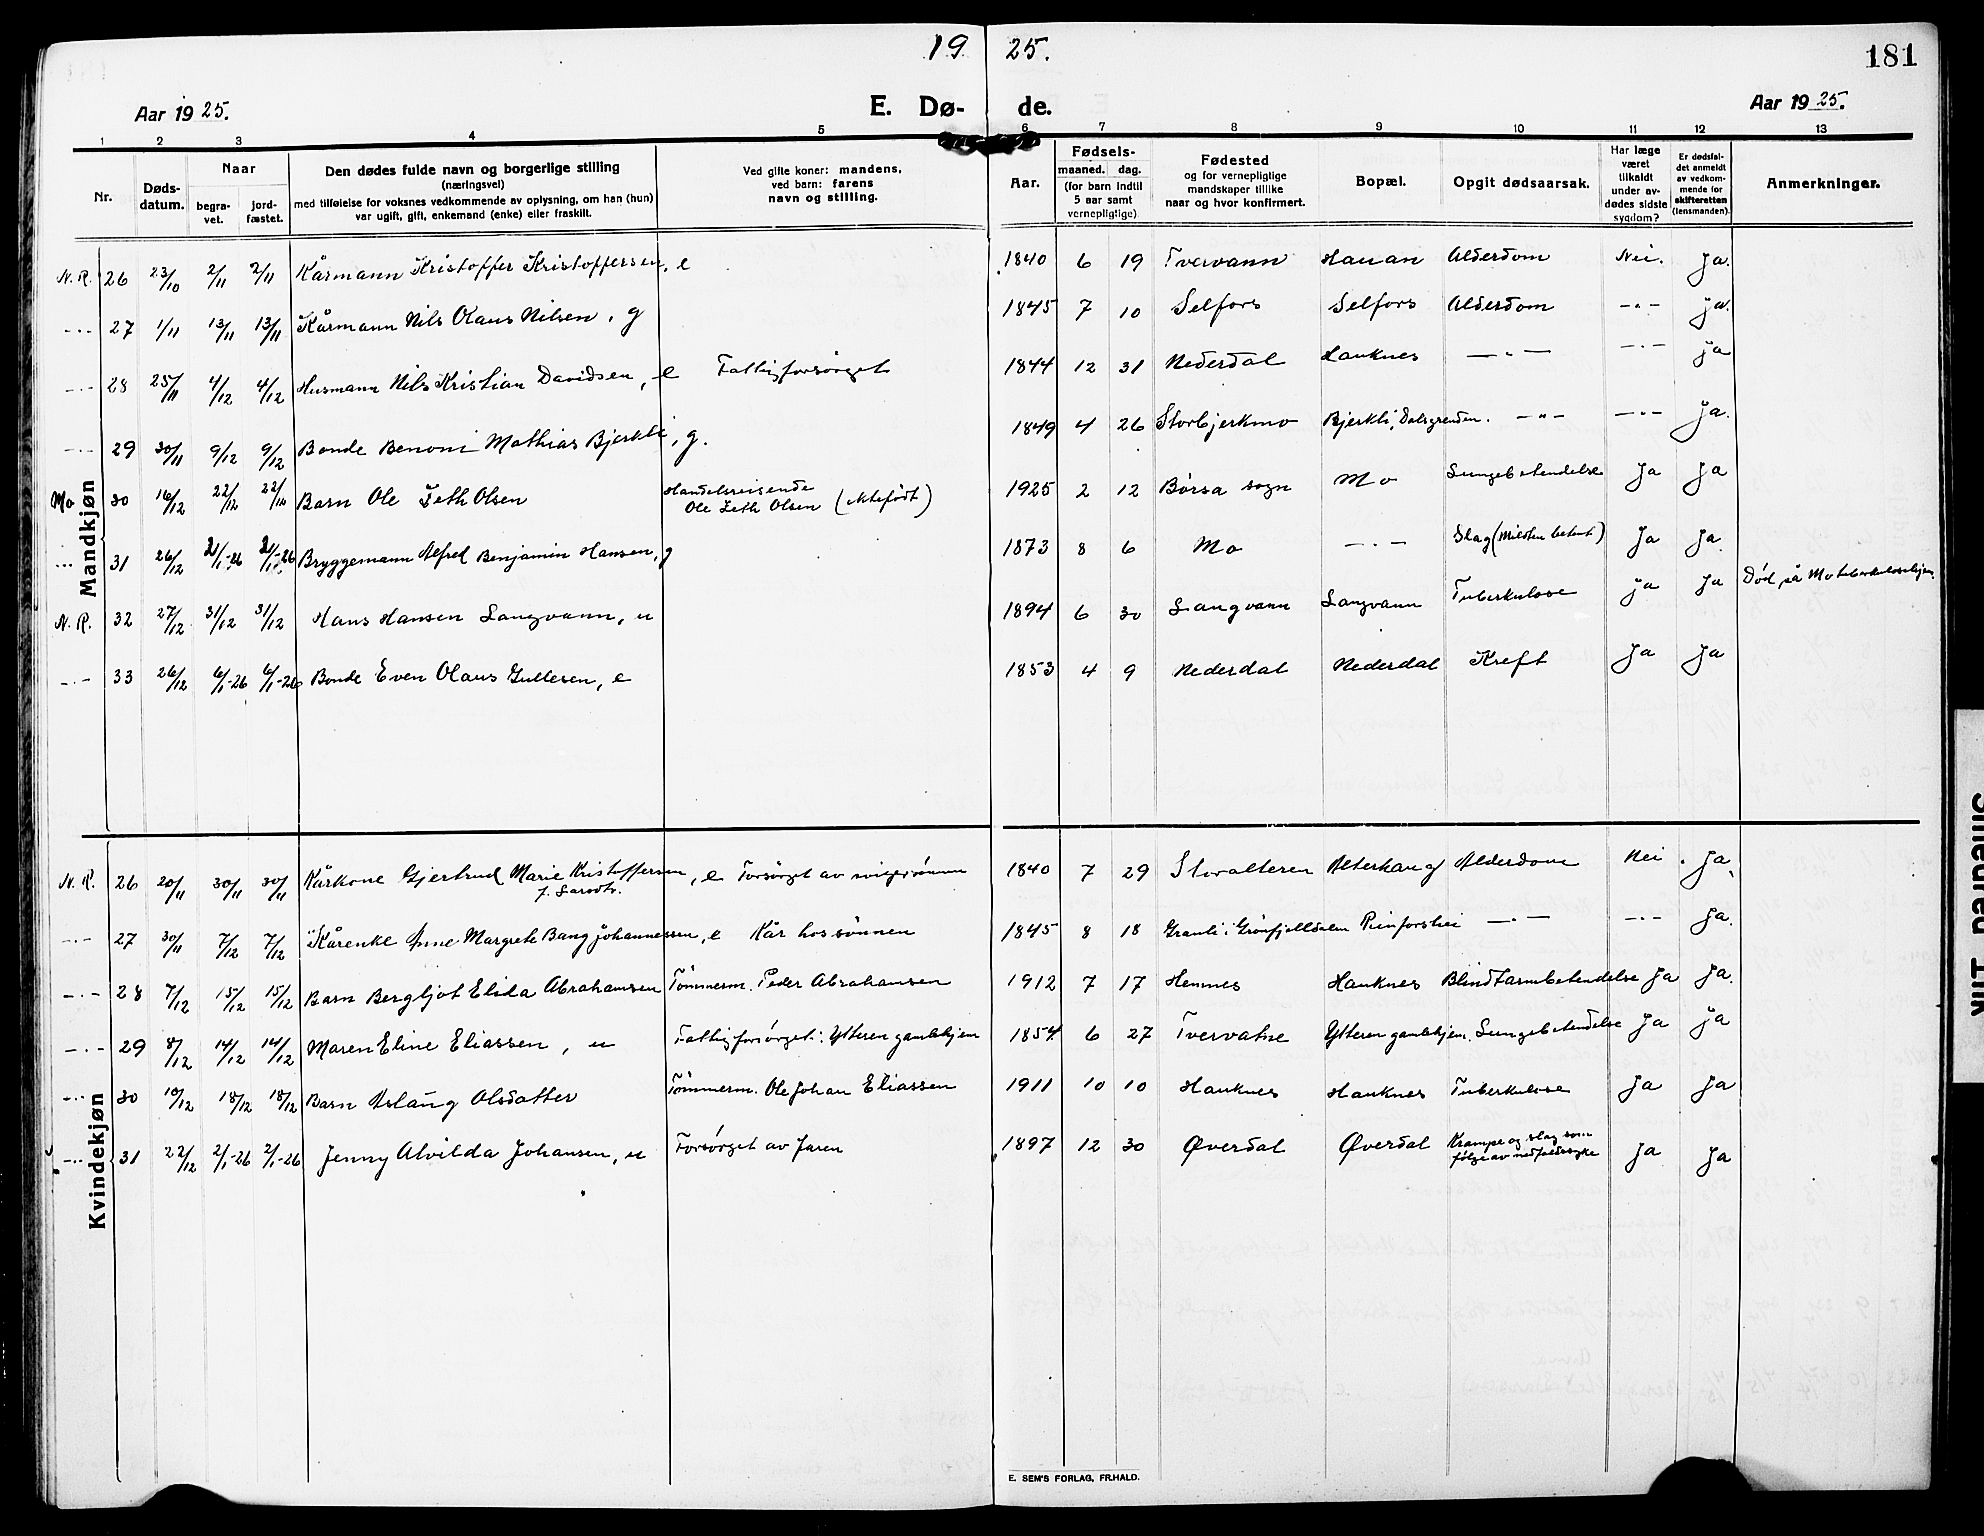 19 25.
181
Aar 1925.
E. Dø- de.
Aar 1925.
1 2 3 4 5 6 7 8 9 10 11 12 13
Nr.
Døds-
datum.
Naar
begra-
vet.
jord-
fæstet.
Den dødes fulde navn og borgerlige stilling
(næringsvei)
med tilføielse for voksnes vedkommende av oplysning, om han (hun)
var ugift, gift, enkemand (enke) eller fraskilt.
Ved gifte koner: mandens,
ved barn: farens
navn og stilling.
Aar.
Fødsels-
maaned. dag.
(for barn indtil
5 aar samt
vernepligtige)
Fødested
og for vernepligtige
mandskaper tillike
naar og hvor konfirmert.
Bopæl.
Opgit dødsaarsak.
Har læge
været
tilkaldt
under av-
dødes sidste
sygdom?
Er dødsfal-
det anmeldt
av vedkom-
mende for
skifteretten
(lensmanden).
Anmerkninger.
Mandkjøn
N. R. 26 23/10 2/11 2/11 Kårmann Kristoffer Kristoffersen, e 1840 6 19 Tvervann Hauan Alderdom Nei. Ja.
-"- 27 1/11 13/11 13/11 Kårmann Nils Olaus Nilsen, g 1845 7 10 Selfors Selfors Alderdom -"- Ja.
-"- 28 25/11 4/12 4/12 Husmann Nils Kristian Davidsen, e Fattigforsørget 1844 12 31 Nederdal Hauknes -"- -"- Ja
-"- 29 30/11 9/12 9/12 Bonde Benoni Mathias Bjerkli, g. 1849 4 26 Storbjerkmo Bjerkli, Dalsgrenden. -"- -"- Ja.
Mo 30 16/12 22/12 22/12 Barn Ole Zeth Olsen Handelsreisende
Ole Zeth Olsen (ektefødt) 1925 2 12 Børsa sogn Mo Lungebetendelse Ja Ja
-"- 31 26/12 2/1-26 2/1-26 Bryggemann Alfred Benjamin Hansen, g 1873 8 6 Mo -"- Slag (Milten betent) Ja Ja.
N. R. 32 27/12 31/12 31/12 Hans Hansen Langvann, u 1894 6 30 Langvann Langvann Tuberkulose Ja Ja Død på Mo tuberkulosehjem.
-"- 33 26/12 6/1-26 6/1-26 Bonde Even Olaus Gullesen, e 1853 4 9 Nederdal Nederdal Kreft Ja Ja
Kvindekjøn
N. R. 26 20/11 30/11 30/11 Kårkone Gjertrud Marie Kristoffersen, e Forsørget av svigersønnen 1840 7 29 Storalteren Alterhaug Alderdom Nei. Ja.
f. Larsdtr.
-"- 27 30/11 7/12 7/12 Kårenke Anne Margrete Bang Johannessen, e Kår hos sønnen 1845 8 18 Granli i Grønfjelldalen Reinforshei -"- -"- Ja.
-"- 28 7/12 15/12 15/12 Barn Bergljot Elida Abrahamsen Tømmerm. Peder Abrahamsen 1912 7 17 Hemnes Hauknes Blindtarmbetendelse Ja Ja.
-"- 29 8/12 14/12 14/12 Maren Eline Eliassen, u Fattigforsørget: Ytteren gamlehjem 1854 6 27 Tvervatne Ytteren gamlehjem. Lungebetendelse Ja Ja
-"- 30 10/12 18/12 18/12 Barn Aslaug Olsdatter Tømmerm. Ole Johan Eliassen 1911 10 10 Hauknes Hauknes Tuberkulose Ja Ja
-"- 31 22/12 2/1-26 2/1-26 Jenny Alvilda Johansen, u Forsørget av faren 1897 12 30 Øverdal Øverdal Krampe og slag som
følge av nedfaldssyke Ja Ja
E. SEM'S FORLAG, FR.HALD.